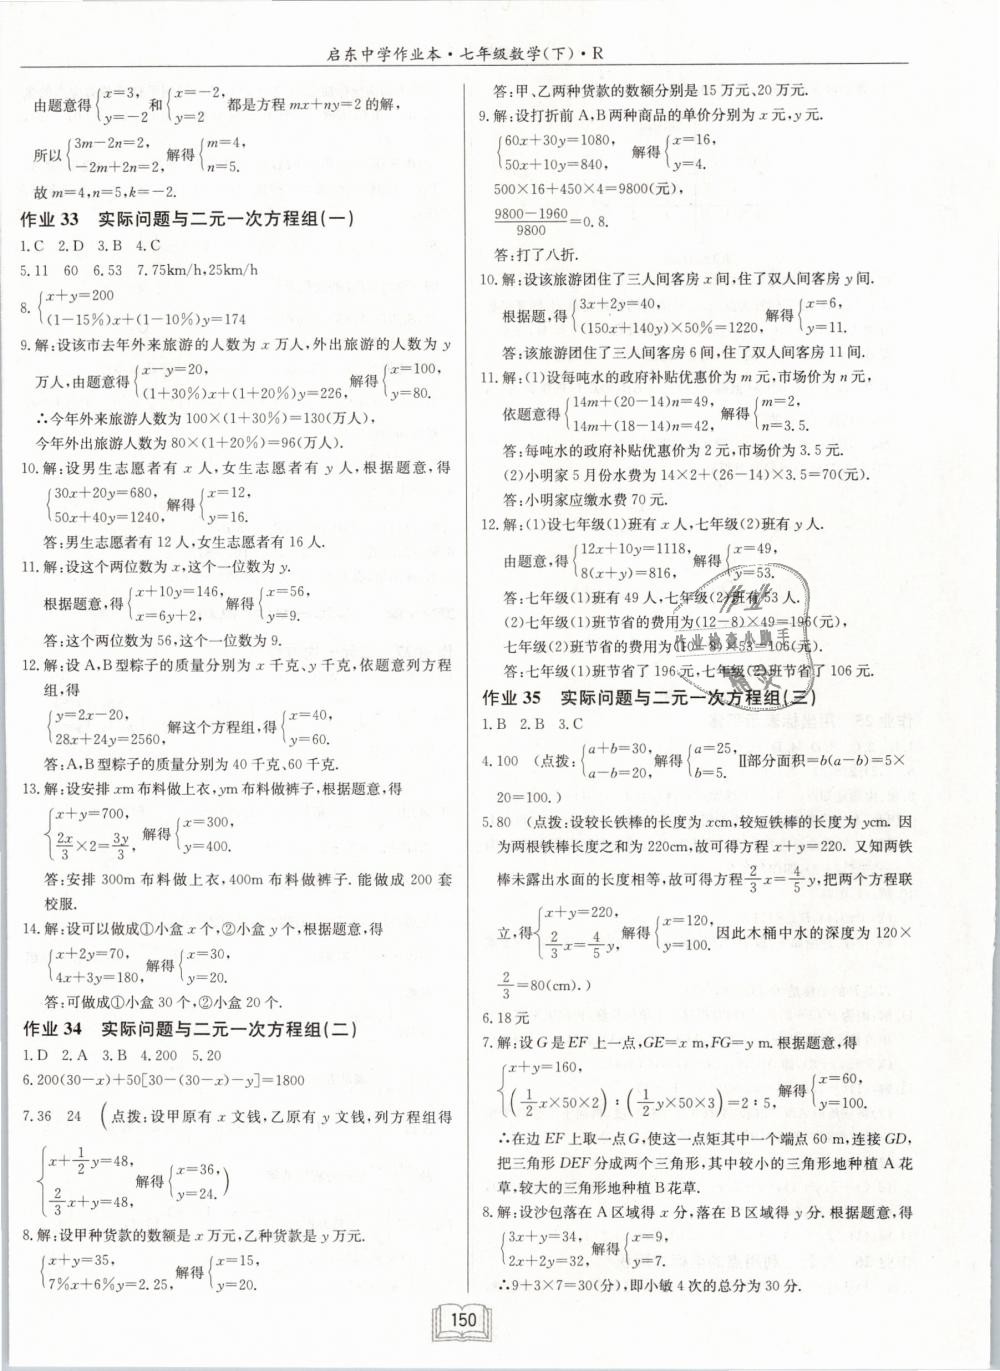 启东中学作业本·七年级数学(下)·R
由题意得{x=3, y=-2 和{x=-2, y=2 都是方程 mx+ny=2 的解,
所以{3m-2n=2, -2m+2n=2, 解得{m=4, n=5.
故 m=4,n=5,k=-2.
作业 33 实际问题与二元一次方程组(一)
1.C 2.D 3.B 4.C
5.11 60 6.53 7.75km/h,25km/h
8.{x+y=200 (1-15%)x+(1-10%)y=174
9.解:设该市去年外来旅游的人数为 x 万人,外出旅游的人数为 y
万人,由题意得{x-y=20, (1+30%)x+(1+20%)y=226, 解得{x=100, y=80.
∴今年外来旅游人数为 100×(1+30%)=130(万人),
今年外出旅游人数为 80×(1+20%)=96(万人).
10.解:设男生志愿者有 x 人,女生志愿者有 y 人,根据题意,得
{30x+20y=680, 50x+40y=1240, 解得{x=12, y=16.
答:男生志愿者有 12 人,女生志愿者有 16 人.
11.解:设这个两位数为 x,这个一位数为 y.
根据题意,得{x+10y=146, x=6y+2, 解得{x=56, y=9.
答:这个两位数为 56,这个一位数为 9.
12.解:设 A,B型粽子的质量分别为 x 千克、y 千克,依题意列方程
组,得
{y=2x-20, 28x+24y=2560, 解这个方程组,得{x=40, y=60.
答:A,B型粽子的质量分别为 40 千克、60 千克.
13.解:设安排 xm 布料做上衣,ym 布料做裤子,根据题意,得
{x+y=700, 2x/3×2=3y/3, 解得{x=300, y=400.
答:安排 300m 布料做上衣,400m 布料做裤子. 能做成 200 套
校服.
14.解:设可以做成①小盒 x 个,②小盒 y 个,根据题意,得
{x+2y=70, 4x+3y=180, 解得{x=30, y=20.
答:可做成①小盒 30 个,②小盒 20 个.
作业 34 实际问题与二元一次方程组(二)
1.D 2.A 3.B 4.200 5.20
6.200(30-x)+50[30-(30-x)-y]=1800
7.36 24 (点拨:设甲原有 x 文钱,乙原有 y 文钱,列方程组得
{x+1/2 y=48, 2/3 x+y=48, 解得{x=36, y=24.)
8.解:设甲种货款的数额是 x 万元,乙种货款是 y 万元.
{x+y=35, 7%x+6%y=2.25, 解得{x=15, y=20.
答:甲、乙两种货款的数额分别是 15 万元、20 万元.
9.解:设打折前 A,B两种商品的单价分别为 x 元,y 元.
{60x+30y=1080, 50x+10y=840, 解得{x=16, y=4.
500×16+450×4=9800(元),
9800-1960/9800=0.8.
答:打了八折.
10.解:设该旅游团住了三人间客房 x 间,住了双人间客房 y 间.
根据题,得{3x+2y=40, (150x+140y)×50%=1220, 解得{x=6, y=11.
答:该旅游团住了三人间客房 6 间,住了双人间客房 11 间.
11.解:(1)设每吨水的政府补贴优惠价为 m 元,市场价为 n 元,
依题意得{14m+(20-14)n=49, 14m+(18-14)n=42, 解得{m=2, n=3.5.
答:每吨水的政府补贴优惠价为 2 元,市场价为 3.5 元.
(2)小明家 5 月份水费为 14×2+(26-14)×3.5=70(元).
答:小明家应缴水费 70 元.
12.解:(1)设七年级(1)班有 x 人,七年级(2)班有 y 人.
由题意,得{12x+10y=1118, 8(x+y)=816, 解得{x=49, y=53.
答:七年级(1)班有 49 人,七年级(2)班有53 人.
(2)七年级(1)班节省的费用为(12-8)×49=196(元),
七年级(2)班节省的费用为(10-8)×53=106(元).
答:七年级(1)班节省了 196 元,七年级(2)班节省了 106 元.
作业检查小助手
作业 35 实际问题与二元一次方程组(三)
1.B 2.B 3.C
4.100 (点拨:{a+b=30, a-b=20, 解得{a=25, b=5. Ⅱ部分面积=b(a-b)=5×
20=100.)
5.80 (点拨:设较长铁棒的长度为 xcm,较短铁棒的长度为 ycm. 因
为两根铁棒长度之和为 220cm,故可得方程 x+y=220. 又知两铁
棒未露出水面的长度相等,故可得方程 2/3 x=4/5 y,把两个方程联
立,得{x+y=220, 2/3 x=4/5 y, 解得{x=120, y=100. 因此木桶中水的深度为 120×
2/3=80(cm).)
6.18 元
7.解:设 G 是 EF 上一点,GE=x m,FG=y m. 根据题意,得
{x+y=160, (1/2 x×50×2):(1/2 y×50×3)=2:5, 解得{x=60, y=100.
∴在边 EF 上取一点G,使这一点矩其中一个端点 60 m,连接 GD,
把三角形 DEF 分成两个三角形,其中较小的三角形地种植 A 花
草,较大的三角形地种植 B 花草.
8.解:设沙包落在 A 区域得 x 分,落在 B 区域得 y 分. 根据题意,得
{3x+y=34, 2x+2y=32, 解得{x=9, y=7.
∴9+3×7=30(分),即小敏 4 次的总分为 30 分.
150